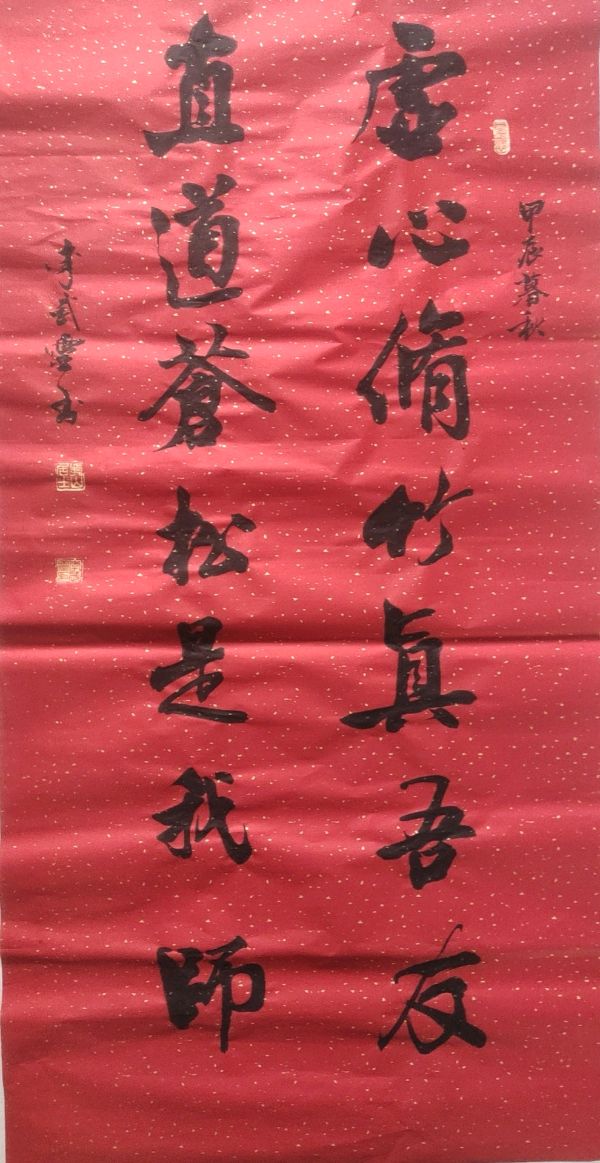 甲辰暮秋
虛心脩竹真吾友
直道蒼松是我師
李武靈書